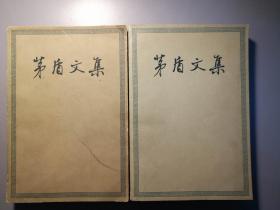 茅盾文集
茅盾文集